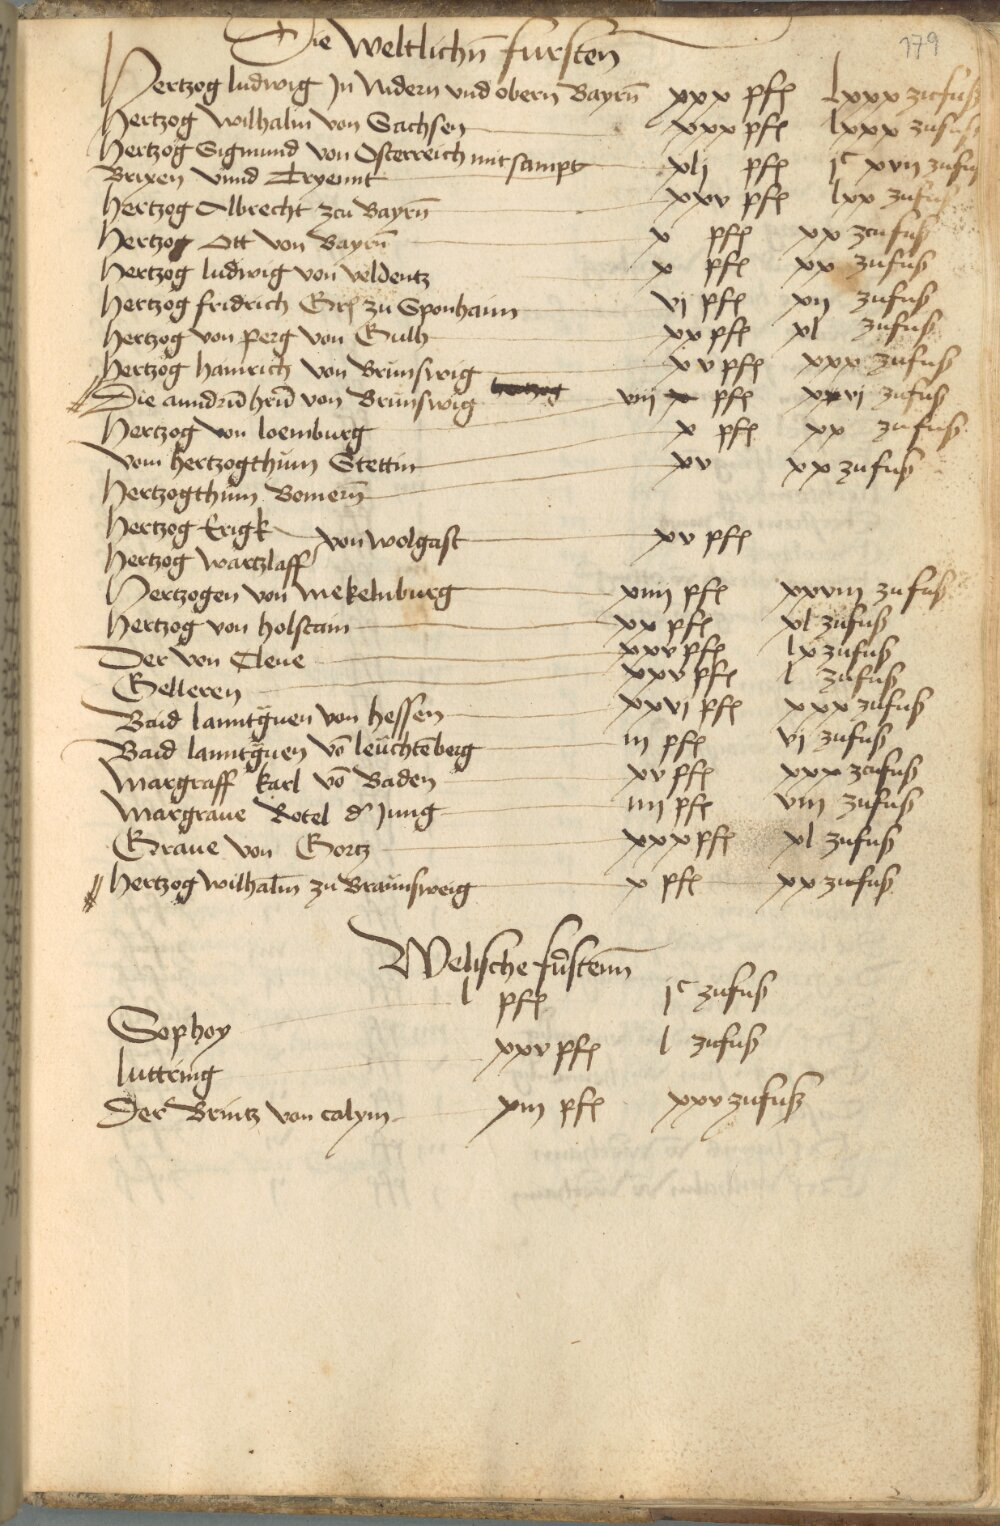 179
Die Weltlichn̄ fursten
Hertzog ludwig Jn Nidern vnd obern Bayrn̄ xxx pfe lxxx zufuß
Hertzog wilhalm von Sachsen xxx pfe lxxx zufuß
Hertzog Sigmund von Osterreich mit sampt
Brixen vnnd Tryennt xlj pfe jc xvii zufuß
Hertzog Albrecht zcu Bayrn̄ xxv pfe lxx zufuß
Hertzog Ott von Bayrn̄ x pfe xx zcufuß
Hertzog ludwig von veldentz x pfe xx zufuß
Hertzog fridrich Grf zu Sponhaim vj pfe xij zufuß
Hertzog von perg von Gulh xx pfe xl zufuß
Hertzog hainrich von Brunswig xv pfe xxx zufuß
Die anndrn̄ hrn̄ von Brunswig viij pfe xvj zufuß
Hertzog von loemburg x pfe xx zufuß
Vom hertzogthum Stettin xv xx zufuß
Hertzogthum Bomern̄
Hertzog Erigk
Hertzog Wartzlaff von wolgast xv pfe
Hertzogen von Mekelnburg xiiij pfe xxviij zufuß
Hertzog von holstain xx pfe xl zufuß
Der von Cleue xxv pfe lx zufuß
Gelleren xxv pfe l zufuß
Baid lanntg̈uen von hessen xxvj pfe xxx zufuß
Baid lanntg̈uen vō leüchtēberg iij pfe vj zufuß
Margraff karl vō Baden xv pfe xxx zcufuß
Margraue Rotel d' Jung iiij pfe viij zufuß
Graue von Gortz xxx pfe xl zufuß
Hertzog wilhalm̄ zu Braunsweig x pfe xx zufuß
Welische fürstenn̄
Sophoy l pfe jc zufuß
luttring xxv pfe l zufuß
Der Brintz von calym xiij pfe xxv zufuß